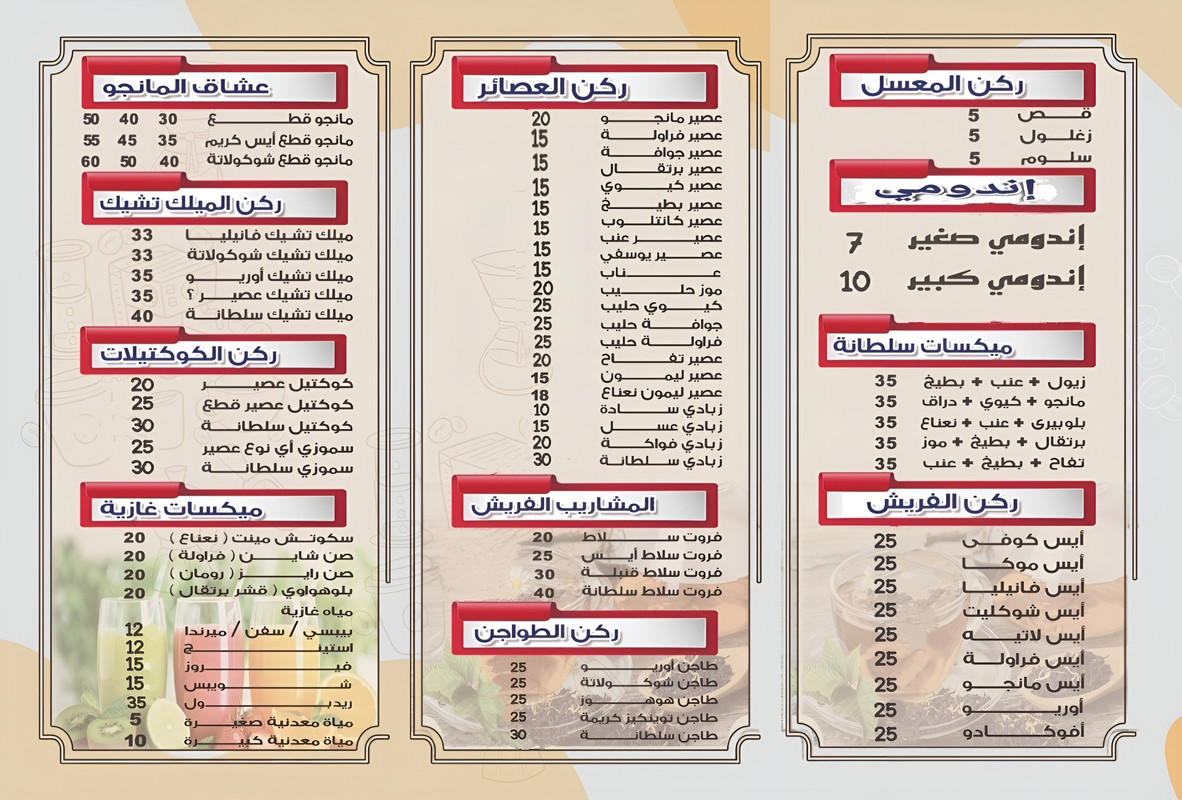 ركن المعسل
قص 5
زغلول 5
سلوم 5
إندومي
إندومي صغير 7
إندومي كبير 10
ميكسات سلطانة
زيول + عنب + بطيخ 35
مانجو + كيوي + دراق 35
بلوبيرى + عنب + نعناع 35
برتقال + بطيخ + موز 35
تفاح + بطيخ + عنب 35
ركن الفريش
أيس كوفى 25
أيس موكا 25
أيس فانيليا 25
أيس شوكليت 25
أيس لاتيه 25
أيس فراولة 25
أيس مانجو 25
أوريو 25
أفوكادو 25
ركن العصائر
عصير مانجو 20
عصير فراولة 15
عصير جوافة
عصير برتقال 15
عصير كيوي 15
عصير بطيخ 15
عصير كانتلوب 15
عصير عنب
عصير يوسفي 15
عناب 15
موز حليب 20
كيوي حليب 25
جوافة حليب 25
فراولة حليب 25
عصير تفاح 20
عصير ليمون 15
عصير ليمون نعناع 18
زبادي سادة 10
زبادي عسل 15
زبادي فواكة 20
زبادي سلطانة 30
المشاريب الفريش
فروت سلاط 20
فروت سلاط أيس 25
فروت سلاط قنبلة 30
فروت سلاط سلطانة 40
ركن الطواجن
طاجن أوريو 25
طاجن شوكولاتة 25
طاجن هوهوز 25
طاجن توينكيز كريمة 25
طاجن سلطانة 30
عشاق المانجو
مانجو قطع 30 40 50
مانجو قطع أيس كريم 35 45 55
مانجو قطع شوكولاتة 40 50 60
ركن الميلك تشيك
ميلك تشيك فانيليا 33
ميلك تشيك شوكولاتة 33
ميلك تشيك أوريو 35
ميلك تشيك عصير ؟ 35
ميلك تشيك سلطانة 40
ركن الكوكتيلات
كوكتيل عصير 20
كوكتيل عصير قطع 25
كوكتيل سلطانة 30
سموزي أي نوع عصير 25
سموزي سلطانة 30
ميكسات غازية
سكوتش مينت ( نعناع ) 20
صن شاين ( فراولة ) 20
صن رايز ( رومان ) 20
بلوهواوي ( قشر برتقال ) 20
مياه غازية
بيبسي / سفن / ميرندا 12
استينج 12
فيروز 15
شويبس 15
ريدبول 35
مياة معدنية صغيرة 5
مياة معدنية كبيرة 10